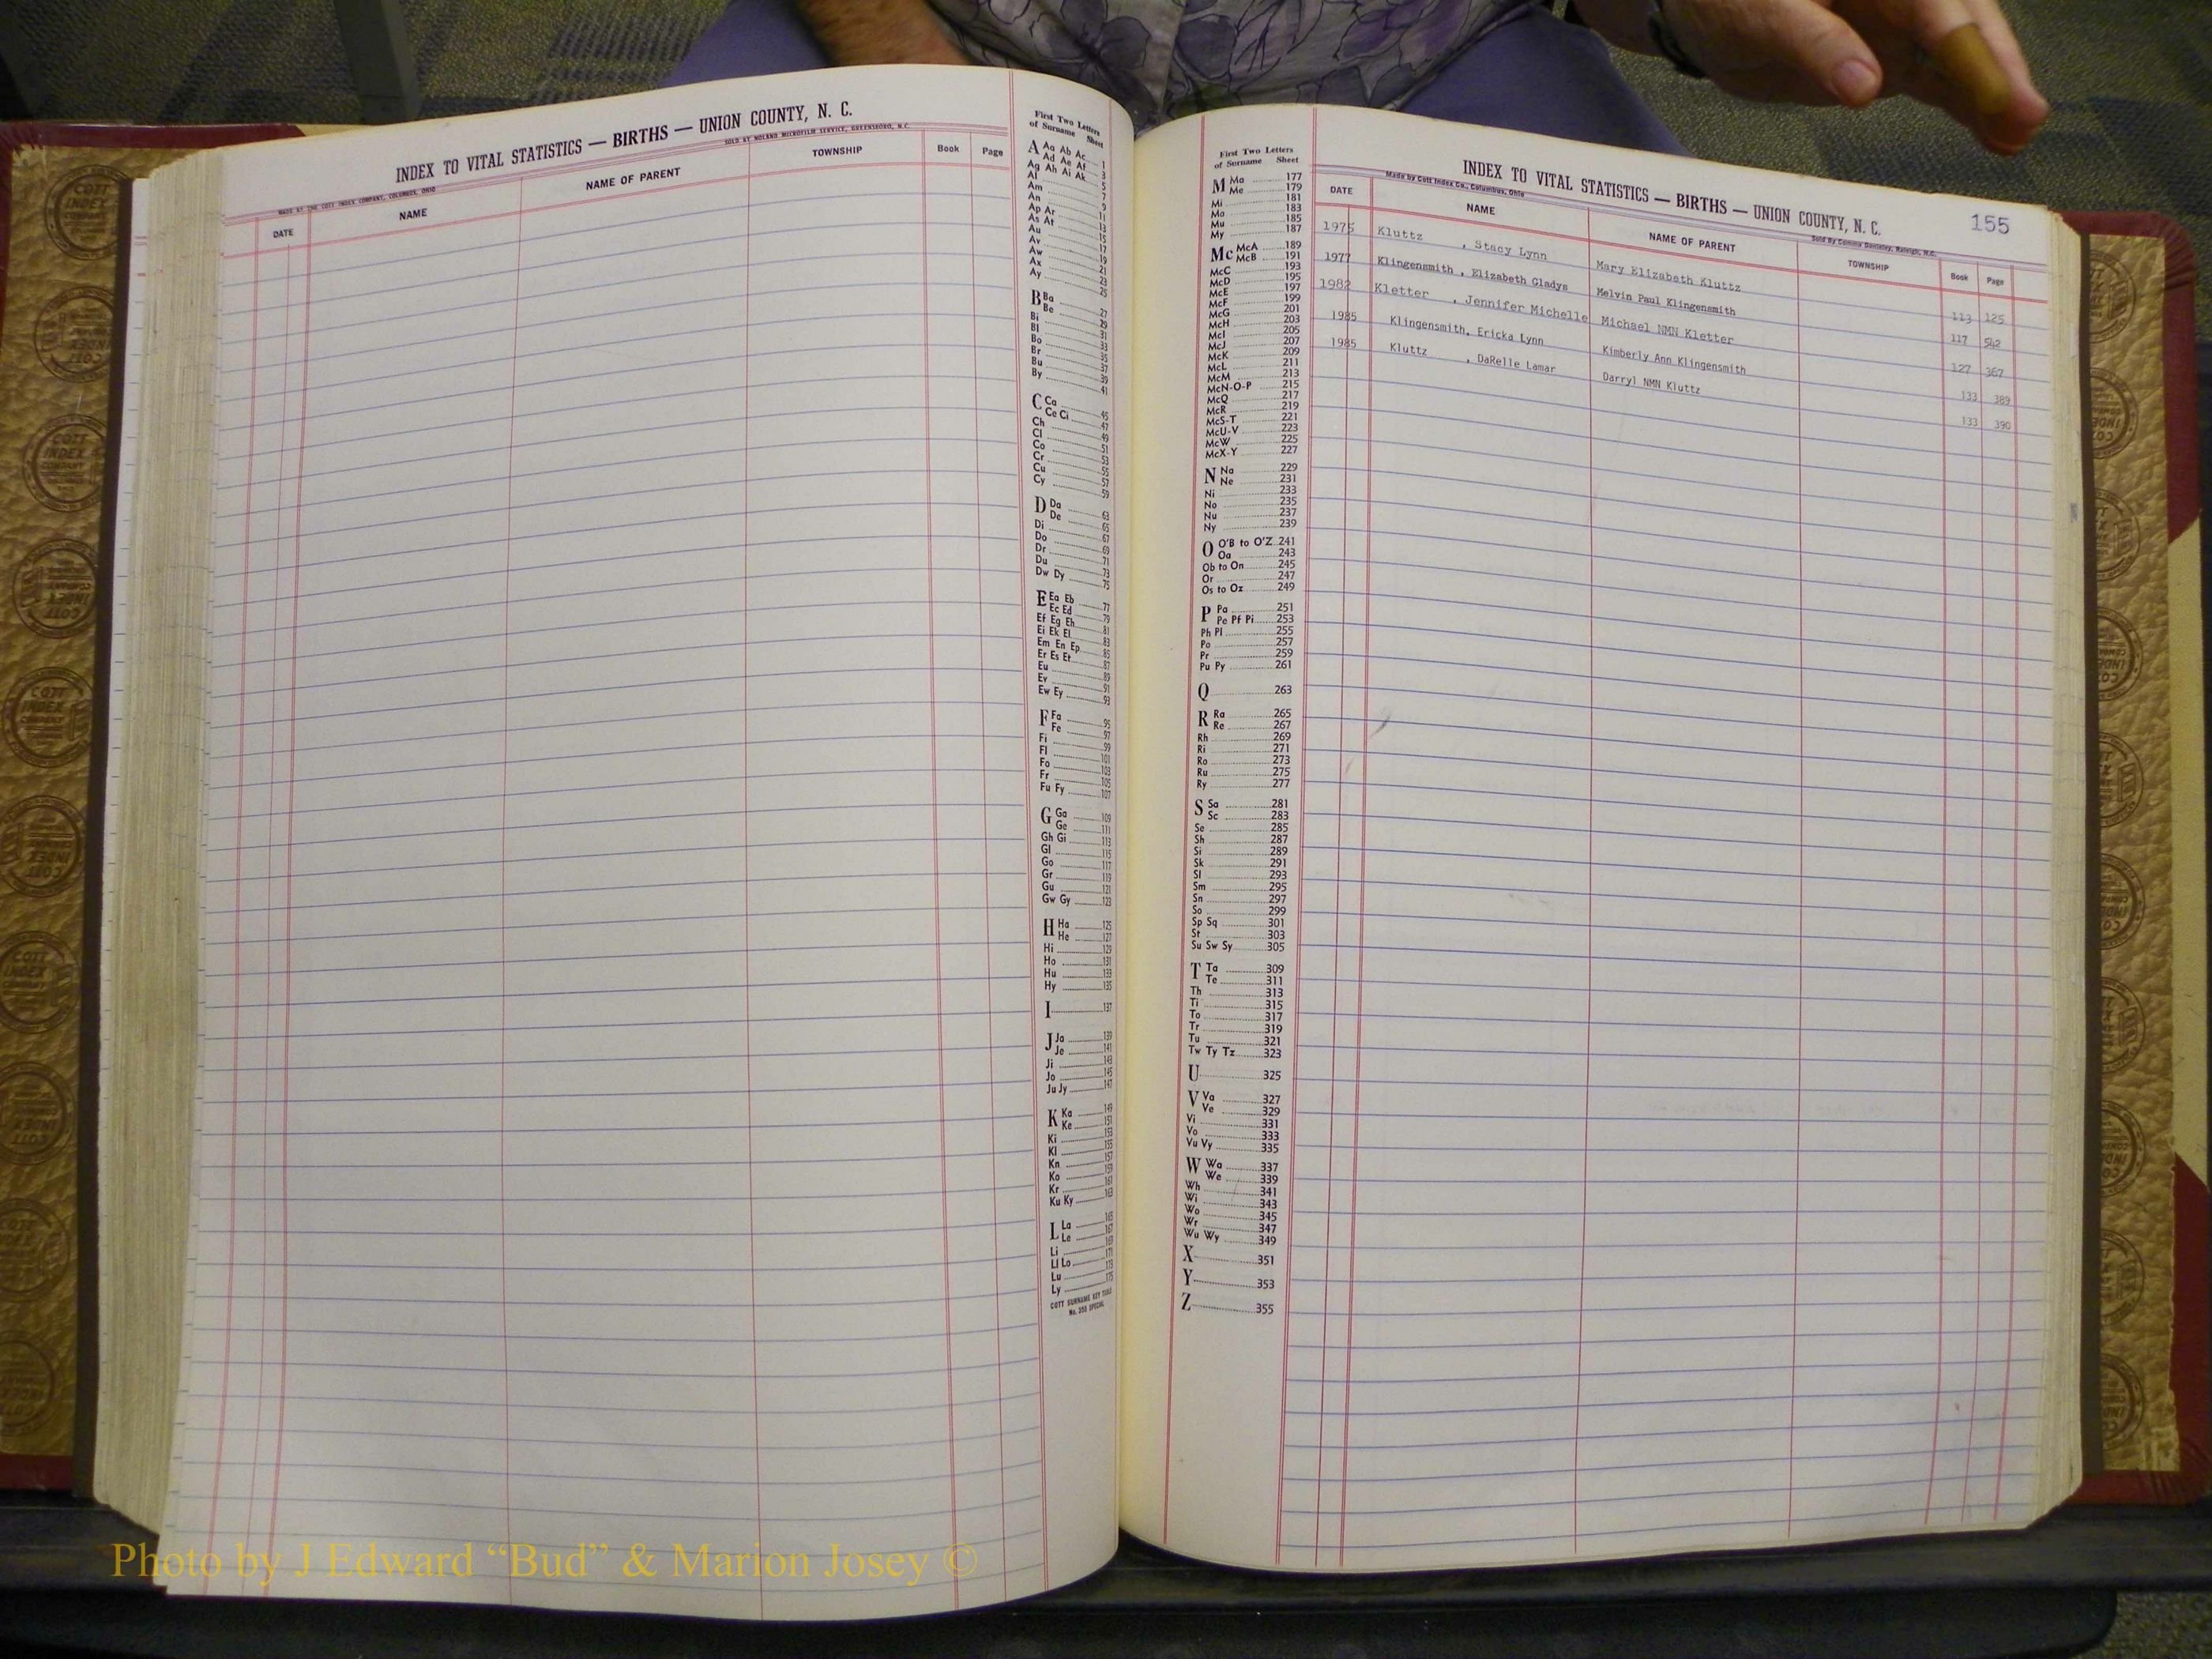 INDEX TO VITAL STATISTICS — BIRTHS — UNION COUNTY, N. C.
MADE BY THE COTT INDEX COMPANY, COLUMBUS, OHIO
SOLD BY NOLAND MICROFILM SERVICE, GREENSBORO, N.C.
DATE NAME NAME OF PARENT TOWNSHIP Book Page
First Two Letters
of Surname Sheet
A Aa Ab Ac 1
Ad Ae Af 3
Ag Ah Ai Ak 5
Al 7
Am 9
An 11
Ap Ar 13
As At 15
Au 17
Av 19
Aw 21
Ax 23
Ay 25
B Ba 27
Be 29
Bi 31
Bl 33
Bo 35
Br 37
Bu 39
By 41
C Ca 45
Ce Ci 47
Ch 49
Cl 51
Co 53
Cr 55
Cu 57
Cy 59
D Da 63
De 65
Di 67
Do 69
Dr 71
Du 73
Dw Dy 75
E Ea Eb 77
Ec Ed 79
Ef Eg Eh 81
Ei Ek El 83
Em En Ep 85
Er Es Et 87
Eu 89
Ev 91
Ew Ey 93
F Fa 95
Fe 97
Fi 99
Fl 101
Fo 103
Fr 105
Fu Fy 107
G Ga 109
Ge 111
Gh Gi 113
Gl 115
Go 117
Gr 119
Gu 121
Gw Gy 123
H Ha 125
He 127
Hi 129
Ho 131
Hu 133
Hy 135
I 137
J Ja 139
Je 141
Ji 143
Jo 145
Ju Jy 147
K Ka 149
Ke 151
Ki 153
Kl 155
Kn 157
Ko 159
Kr 161
Ku Ky 163
L La 165
Le 167
Li 169
Ll Lo 171
Lu 173
Ly 175
COTT SURNAME KEY TABLE
No. 350 SPECIAL
First Two Letters
of Surname Sheet
M Ma 177
Me 179
Mi 181
Mo 183
Mu 185
My 187
Mc McA 189
McB 191
McC 193
McD 195
McE 197
McF 199
McG 201
McH 203
McI 205
McJ 207
McK 209
McL 211
McM 213
McN-O-P 215
McQ 217
McR 219
McS-T 221
McU-V 223
McW 225
McX-Y 227
N Na 229
Ne 231
Ni 233
No 235
Nu 237
Ny 239
O O'B to O'Z 241
Oa 243
Ob to On 245
Or 247
Os to Oz 249
P Pa 251
Pe Pf Pi 253
Ph Pl 255
Po 257
Pr 259
Pu Py 261
Q 263
R Ra 265
Re 267
Rh 269
Ri 271
Ro 273
Ru 275
Ry 277
S Sa 281
Sc 283
Se 285
Sh 287
Si 289
Sk 291
Sl 293
Sm 295
Sn 297
So 299
Sp Sq 301
St 303
Su Sw Sy 305
T Ta 309
Te 311
Th 313
Ti 315
To 317
Tr 319
Tu 321
Tw Ty Tz 323
U 325
V Va 327
Ve 329
Vi 331
Vo 333
Vu Vy 335
W Wa 337
We 339
Wh 341
Wi 343
Wo 345
Wr 347
Wu Wy 349
X 351
Y 353
Z 355
INDEX TO VITAL STATISTICS — BIRTHS — UNION COUNTY, N. C. 155
Made by Cott Index Co., Columbus, Ohio
DATE NAME NAME OF PARENT TOWNSHIP Book Page
1975 Kluttz , Stacy Lynn Mary Elizabeth Kluttz 113 125
1977 Klingensmith , Elizabeth Gladys Melvin Paul Klingensmith 117 542
1982 Kletter , Jennifer Michelle Michael NMN Kletter 127 367
1985 Klingensmith, Ericka Lynn Kimberly Ann Klingensmith 133 389
1985 Kluttz , DaRelle Lamar Darryl NMN Kluttz 133 390
COTT INDEX COMPANY
Photo by J Edward “Bud” & Marion Josey ©